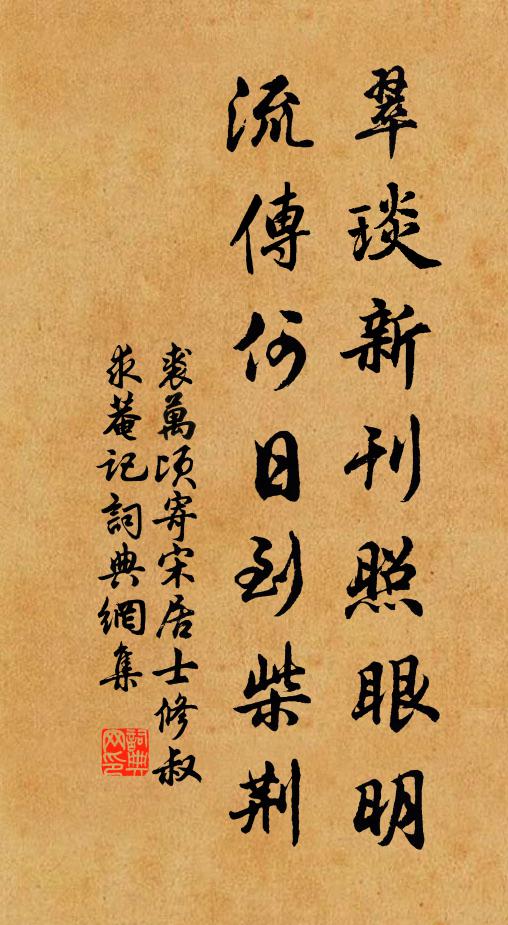 翠琰新刊照眼明
流傳何日到柴荆
裘萬頃寄宋居士修叔
求菴記詞典網集
詞典網印